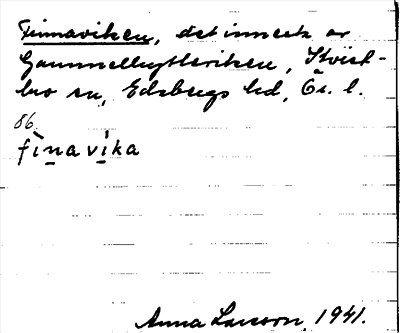 Finnaviken, det innersta av
Gammelhytteviken, Kvist-
bro sn, Edsbergs hd, Ör. l.
86.
finavika
Anna Larsson, 1941.